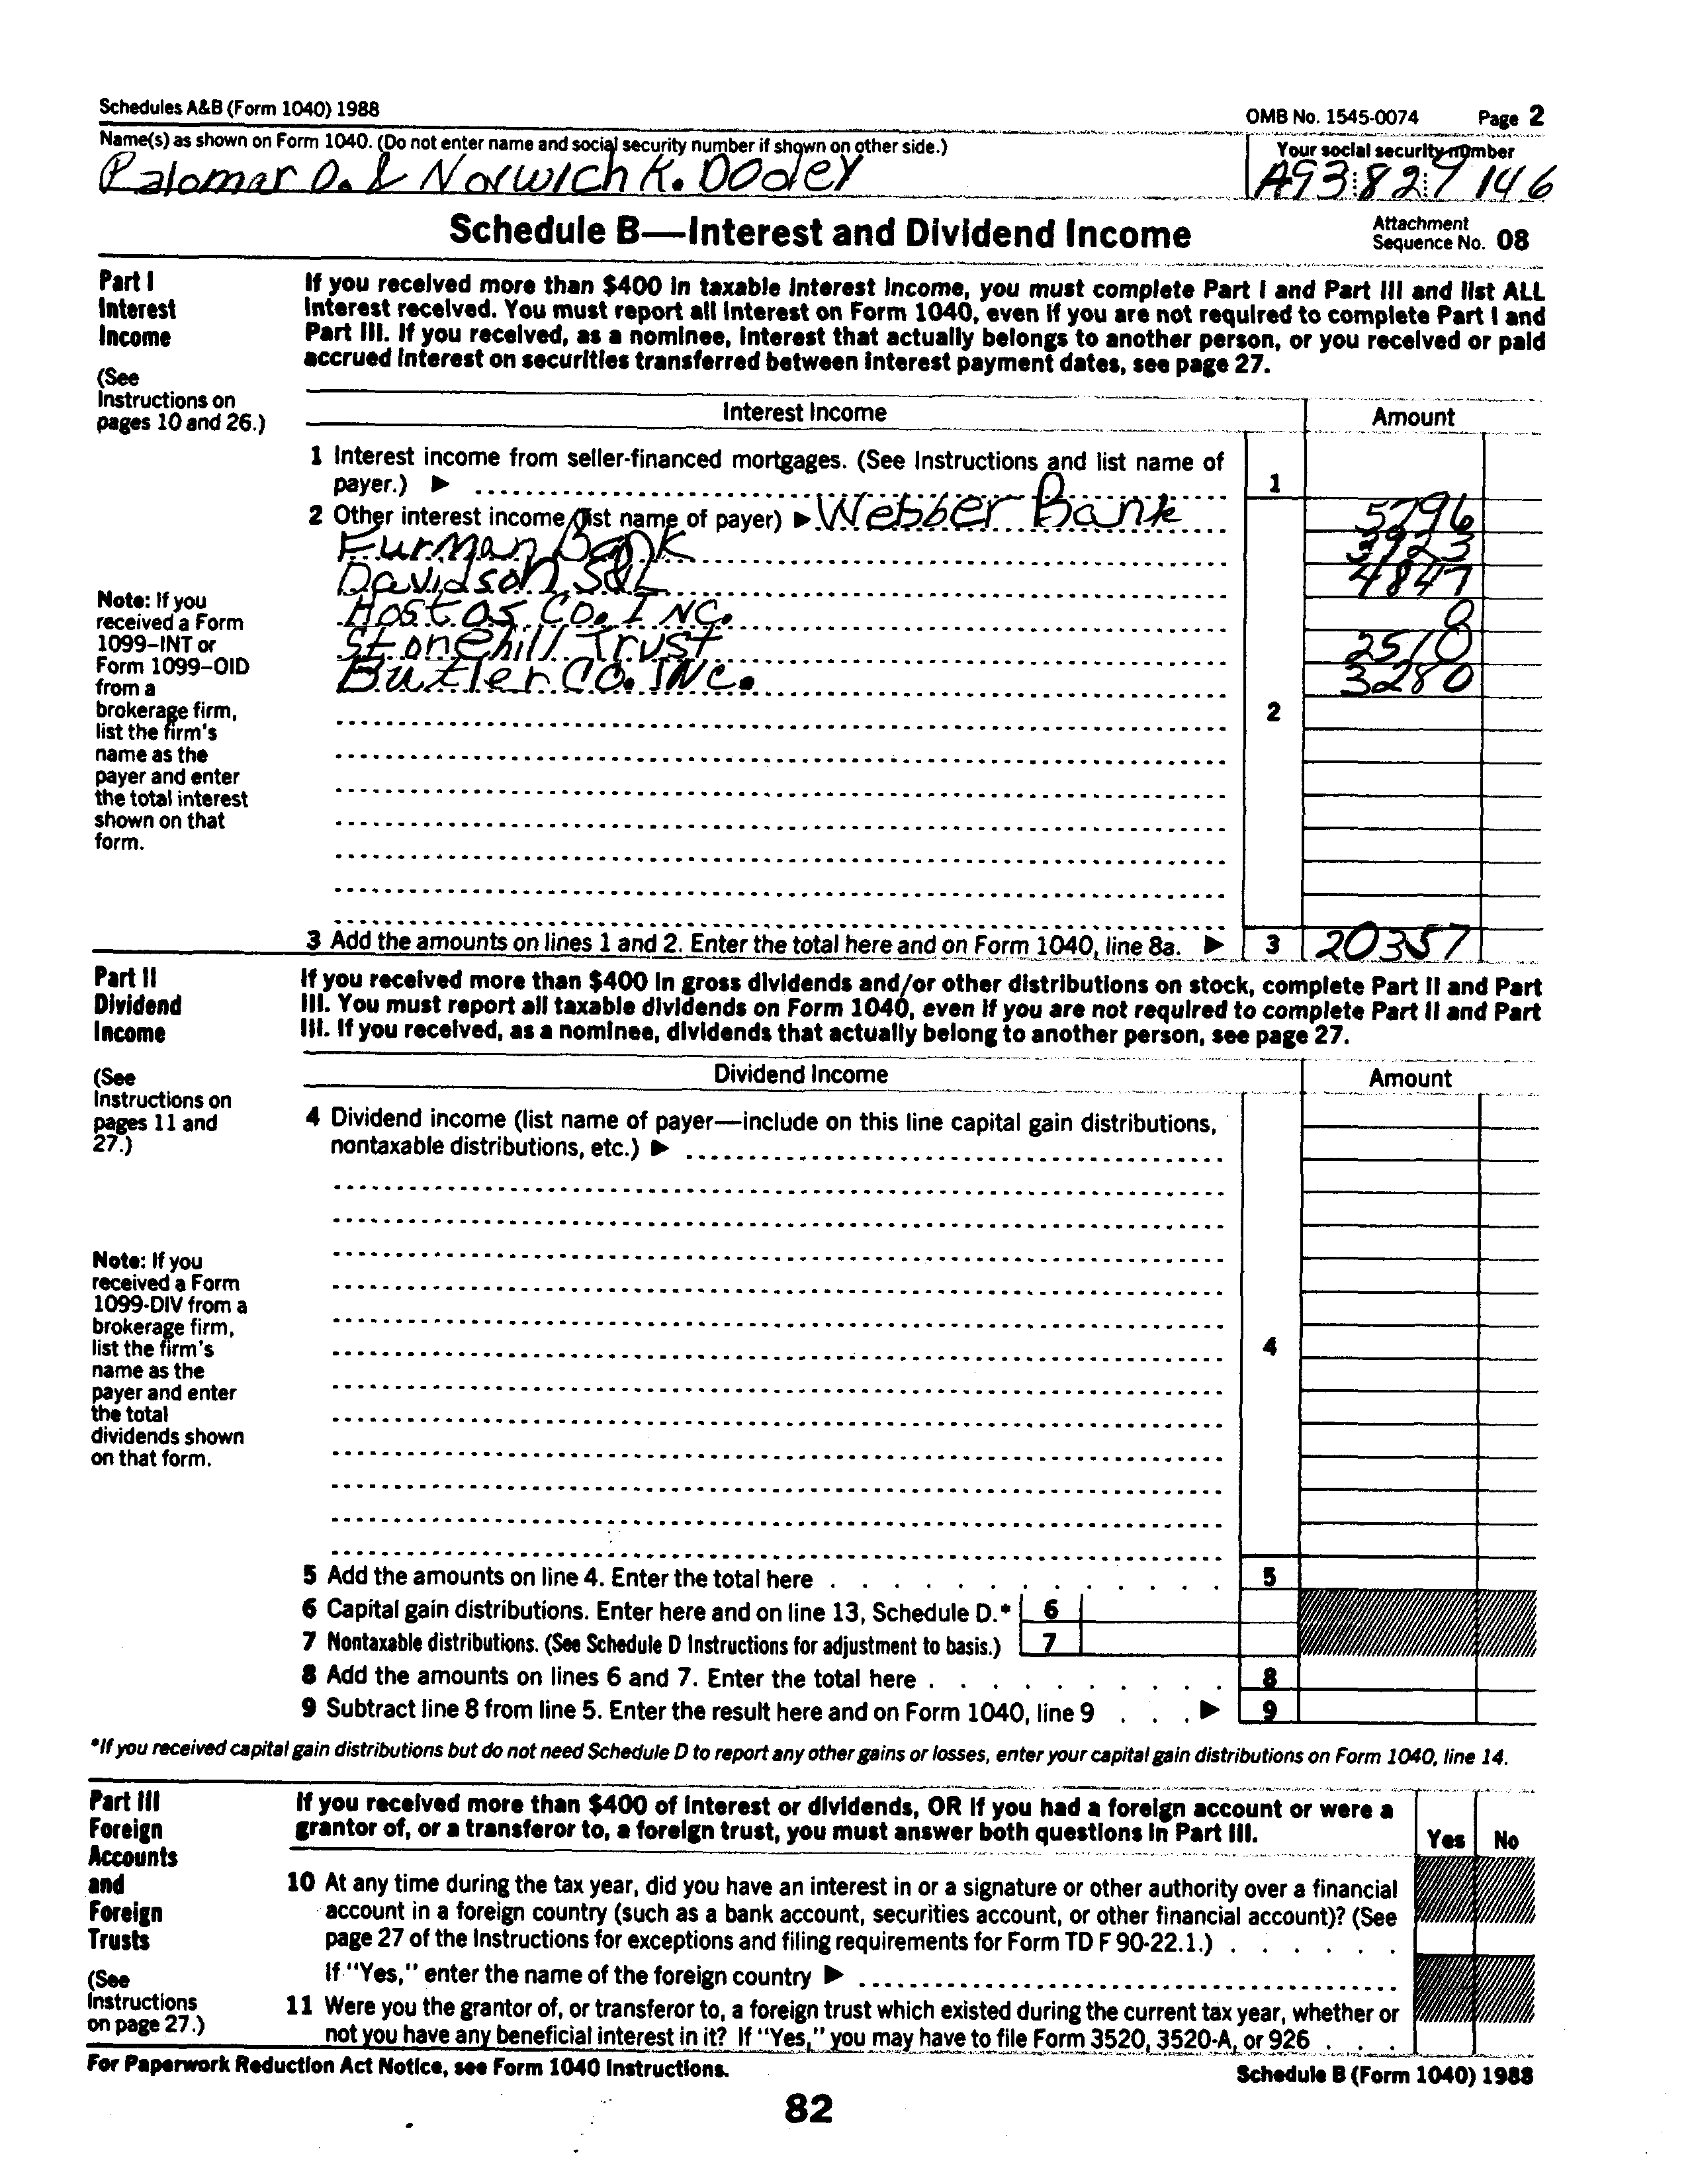 Schedules A&B (Form 1040) 1988
OMB No. 1545-0074 Page 2
Name(s) as shown on Form 1040. (Do not enter name and social security number if shown on other side.)
Your social security number
Palomar O. & Norwich K. Dooley
A93 82 7146
Schedule B—Interest and Dividend Income
Attachment
Sequence No. 08
Part I
Interest
Income
(See
Instructions on
pages 10 and 26.)
If you received more than $400 in taxable interest income, you must complete Part I and Part III and list ALL
interest received. You must report all interest on Form 1040, even if you are not required to complete Part I and
Part III. If you received, as a nominee, interest that actually belongs to another person, or you received or paid
accrued interest on securities transferred between interest payment dates, see page 27.
Interest Income
Amount
1 Interest income from seller-financed mortgages. (See Instructions and list name of
payer.) ▶
1
2 Other interest income (list name of payer) ▶ Webber Bank 5796
Furman Bank 3923
Davidson S&L 4847
Hostos Co. INC. 0
Stonehill Trust 2510
Butler Co. INC. 3280
2
Note: If you
received a Form
1099–INT or
Form 1099–OID
from a
brokerage firm,
list the firm's
name as the
payer and enter
the total interest
shown on that
form.
3 Add the amounts on lines 1 and 2. Enter the total here and on Form 1040, line 8a. ▶ 3 20357
Part II
Dividend
Income
(See
Instructions on
pages 11 and
27.)
If you received more than $400 in gross dividends and/or other distributions on stock, complete Part II and Part
III. You must report all taxable dividends on Form 1040, even if you are not required to complete Part II and Part
III. If you received, as a nominee, dividends that actually belong to another person, see page 27.
Dividend Income
Amount
4 Dividend income (list name of payer—include on this line capital gain distributions,
nontaxable distributions, etc.) ▶
4
Note: If you
received a Form
1099-DIV from a
brokerage firm,
list the firm's
name as the
payer and enter
the total
dividends shown
on that form.
5 Add the amounts on line 4. Enter the total here . . . . . . . . . . 5
6 Capital gain distributions. Enter here and on line 13, Schedule D.* 6
7 Nontaxable distributions. (See Schedule D Instructions for adjustment to basis.) 7
8 Add the amounts on lines 6 and 7. Enter the total here . . . . . . . . . 8
9 Subtract line 8 from line 5. Enter the result here and on Form 1040, line 9 . . . ▶ 9
*If you received capital gain distributions but do not need Schedule D to report any other gains or losses, enter your capital gain distributions on Form 1040, line 14.
Part III
Foreign
Accounts
and
Foreign
Trusts
(See
Instructions
on page 27.)
If you received more than $400 of interest or dividends, OR if you had a foreign account or were a
grantor of, or a transferor to, a foreign trust, you must answer both questions in Part III.
Yes No
10 At any time during the tax year, did you have an interest in or a signature or other authority over a financial
account in a foreign country (such as a bank account, securities account, or other financial account)? (See
page 27 of the Instructions for exceptions and filing requirements for Form TD F 90-22.1.) . . . . . .
If "Yes," enter the name of the foreign country ▶
11 Were you the grantor of, or transferor to, a foreign trust which existed during the current tax year, whether or
not you have any beneficial interest in it? If "Yes," you may have to file Form 3520, 3520-A, or 926 . . .
For Paperwork Reduction Act Notice, see Form 1040 Instructions.
Schedule B (Form 1040) 1988
82